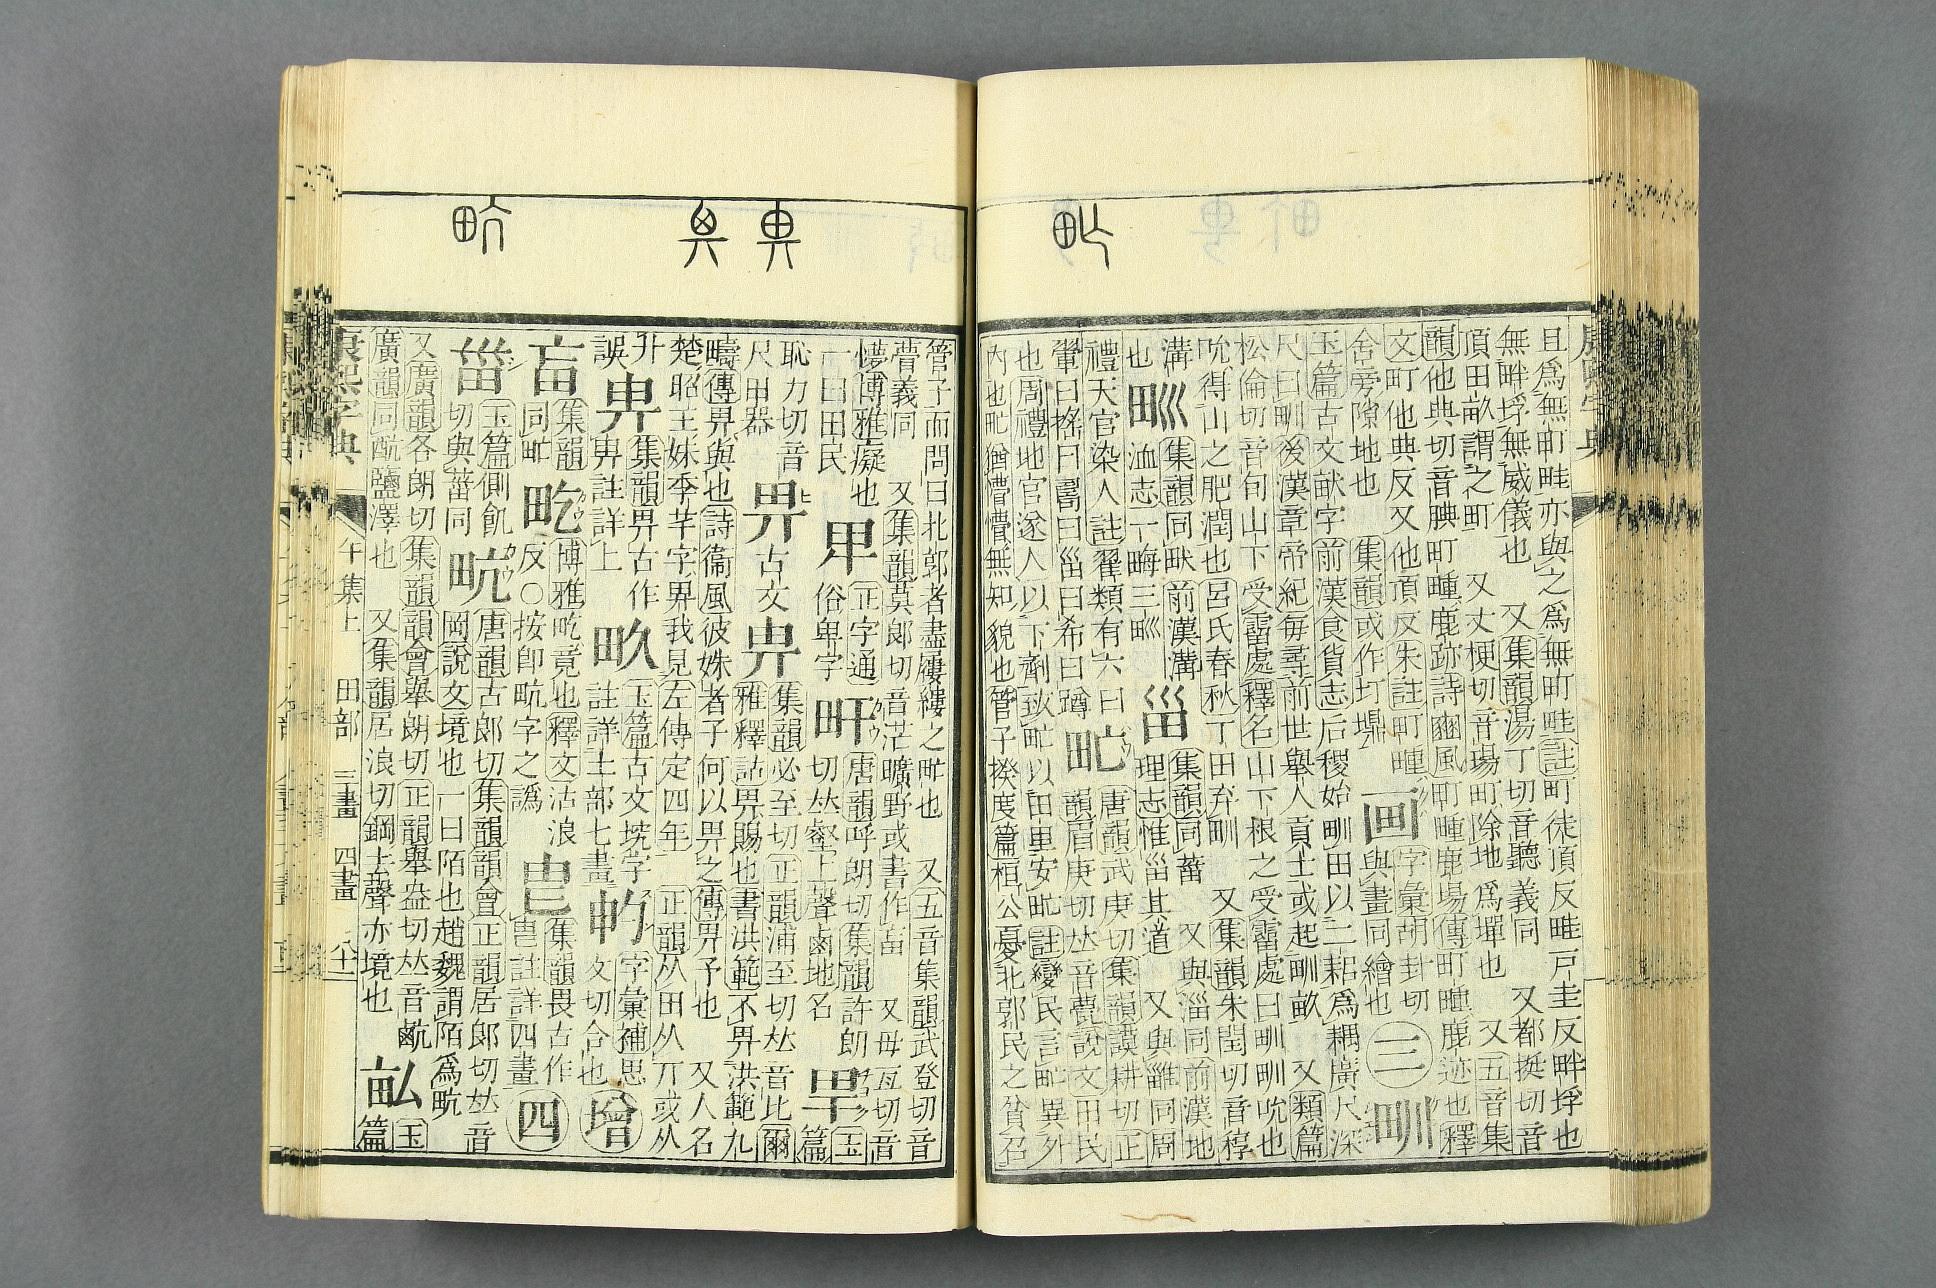 且爲無町畦亦與之爲無町畦註町徒頂反畦戸圭反畔埓也
無畔埓無威儀也 又集韻湯丁切音聽義同 又都挺切音
頂田畝謂之町 又丈梗切音瑒町除地爲墠也 又五音集
韻他典切音腆町畽鹿跡詩豳風町畽鹿場傳町畽鹿迹也釋
文町他典反又他頂反朱註町畽
舍旁隙地也 集韻或作圢
画 字彙胡封切
與畫同繪也
三
甽
玉篇古文畎字前漢食貨志后稷始甽田以二耜爲耦廣尺深
尺曰甽後漢章帝紀每尋前世舉人貢士或起甽畝 又類篇
松倫切音旬山下受霤處釋名山下根之受霤處曰甽甽吮也
吮得山之肥潤也呂氏春秋丁田弃甽 又集韻朱閏切音稕
溝
也
集韻同畎 前漢溝
洫志一畮三
甾
集韻同菑 又與淄同前漢地
理志惟甾其道 又與雖同周
禮天官染人註翟類有六曰
翬曰搖曰曰甾曰希曰蹲
甿
唐韻武庚切集韻謨耕切正
韻眉庚切𠀤音甍說文田民
也周禮地官遂人以下劑致甿以田里安甿註變民言甿異外
内也甿猶懵懵無知貌也管子揆度篇桓公憂北郭民之貧召
管子而問曰北郭者盡屨縷之甿也 又五音集韻武登切音
瞢義同 又集韻莫郞切音茫曠野或書作 又母亙切音
懜博雅癡也
一曰田民
正字通
俗卑字
唐韻呼朗切集韻許朗
切𠀤壑上聲鹵地名
玉
篇
恥力切音
尺田器
畀
古文
𢌿
集韻必至切正韻浦至切𠀤音比爾
雅釋詁畀賜也書洪範不畀洪範九
疇傳畀與也詩衞風彼姝者子何以畀之傳畀予也 又人名
楚昭王妹季芊字畀我見左傳定四年 正韻从田从丌或从
廾
誤
𢌿
集韻畀古作
𢌿註詳上
畂
玉篇古文坑字
註詳土部七畫
字彙補思
文切合也
增
集韻
同甿
博雅竟也釋文沽浪
反○按卽㽘字之譌
集韻畏古作
註詳四畫
四
甾
玉篇側飢
切與菑同
㽘
唐韻古郞切集韻韻會正韻居郞切𠀤音
岡說文境也一曰陌也趙魏謂陌爲㽘
又廣韻各朗切集韻韻會舉朗切正韻舉盎切𠀤音䴚
廣韻同䴚鹽澤也 又集韻居浪切鋼去聲亦境也
玉
篇
康熙字典 午集上 田部 三畫 四畫